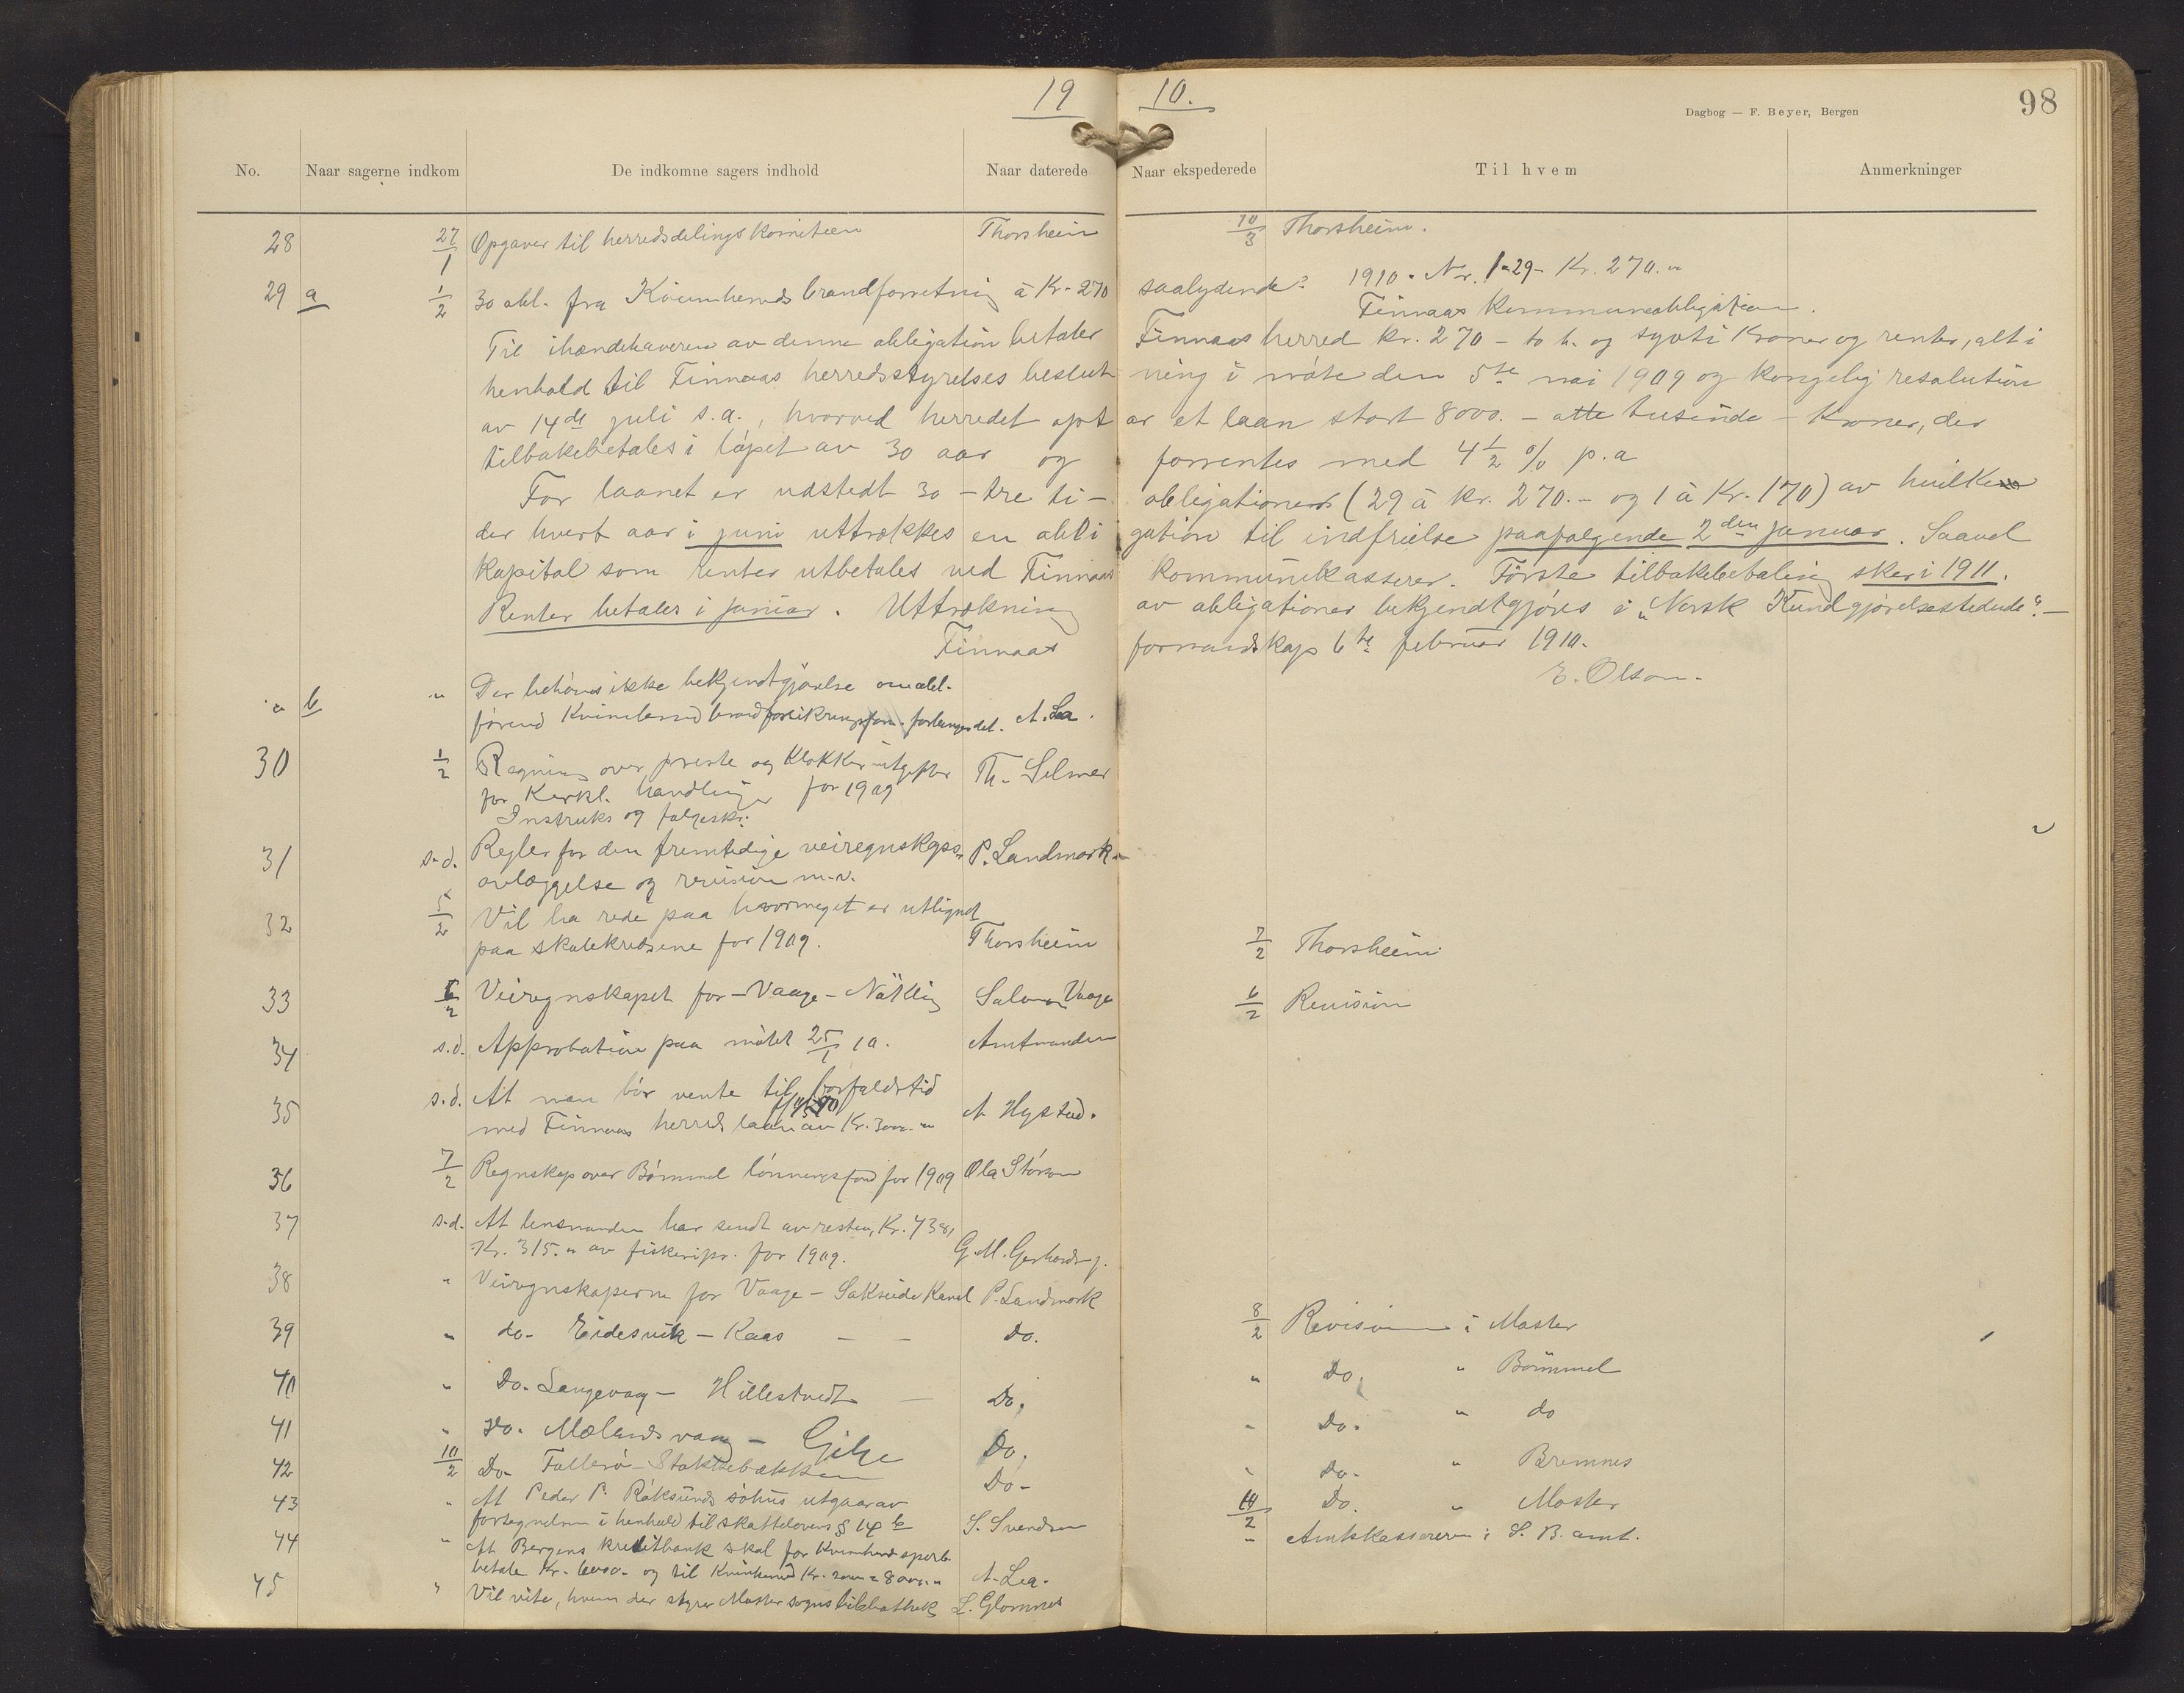 19 10.
Dagbog — F. Beyer, Bergen
98
No. Naar sagerne indkom De indkomne sagers indhold Naar daterede Naar ekspederede Til hvem Anmerkninger
28 27/1 Opgaver til herredsdelingskomiteen Thorsheim 10/3 Thorsheim.
29 a 1/2 30 obl. fra Kvinnherreds brandforretning à Kr. 270 saalydende: 1910. Nr. 1-29- Kr. 270.-
Finnaas Kommuneobligation.
Til ihændehaveren av denne obligation betaler Finnaas herred Kr. 270 – to h. og sytti Kroner og renter, alt i
henhold til Finnaas herredsstyrelses beslutning i møte den 5te mai 1909 og kongelig resolution
av 14de juli s.a., hvorved herredet optar et laan stort 8000. – otte tusinde – Kroner, der
tilbakebetales i løpet av 30 aar og forrentes med 4 1/2 % p.a
For laanet er udstedt 30 – tre ti – obligationer (29 à Kr. 270.- og 1 à Kr. 170) av hvilke
der hvert aar i juni uttrækkes en obligation til indfrielse paafølgende 2den januar. Saavel
Kapital som renter utbetales ved Finnaas Kommunekasserer. Første tilbakebetaling sker i 1911.
Renter betales i januar. Uttrækning av obligationer bekjendtgjøres i "Norsk Kundgjørelsestidende".-
Finnaas formandskap 6te februar 1910.
E. Olson.
" b " Der behøves ikke bekjendtgjørelse om obl.
førend Kvinnherred brandforsikringsforr. forlanger det. A. Lea.
30 1/2 Regning over preste og Klokkerutgifter Th. Selmer
for Kirkl. handlinger for 1909
Instruks og følgeskr.
31 s.d. Regler for den fremtidige veiregnskaps- P. Landmark
avlæggelse og revision m.v.
32 5/2 Vil ha rede paa hvormeget er utlignet
paa skolekredsene for 1909. Thorsheim 7/2 Thorsheim
33 6/2 Veiregnskapet for – Vaage – Nøkling Salomon Vaage 6/2 Revision
34 s.d. Approbation paa møtet 25/1 10. Amtmanden
35 s.d. At man bør vente til forfaldstid
med Finnaas herreds laan av Kr. 3000.- A Hystad.
36 7/2 Regnskap over Bømmel lønningsfond for 1909 Ola Størson
37 s.d. At lensmanden har sendt av resten, Kr. 73
Kr. 315.- av fiskeripr. for 1909. G. M. Gerhards j.
38 " Veiregnskaperne for Vaage – Sakseide Kanal P. Landmark
39 " do. Eidesvik – Kaas – – Do. 8/2 Revision i Moster
40 " Do. Langevaag – Hillestvedt – Do. " Do. " Bømmel
41 " Do. Mælandsvaag – Gihe Do. " Do. " do
42 10/2 Do. Follerø – Stokkebækken Do- " Do. " Bremnes
43 " At Peder P. Røksunds søhus utgaar av 10/2 Do. " Moster
fortegnelsen i henhold til skattelovens § 14 b S. Svendsen
44 " At Bergens kreditbank skal for Kvinherred sparb. " Amtskassereren i S. B. amt.
betale Kr. 6000.- og til Kvinherred Kr. 2000 = 8000.- A. Lea.
45 " Vil vite, hvem der styrer Moster sogns bibliothek L. Glommes